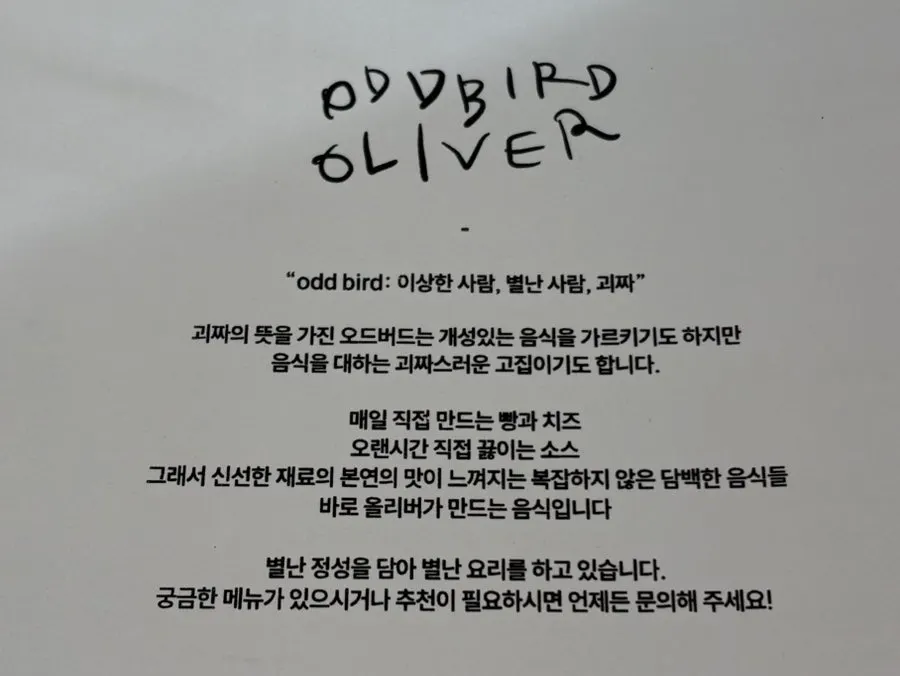 ODDBIRD
OLIVER
-
“odd bird: 이상한 사람, 별난 사람, 괴짜”
괴짜의 뜻을 가진 오드버드는 개성있는 음식을 가르키기도 하지만
음식을 대하는 괴짜스러운 고집이기도 합니다.
매일 직접 만드는 빵과 치즈
오랜시간 직접 끓이는 소스
그래서 신선한 재료의 본연의 맛이 느껴지는 복잡하지 않은 담백한 음식들
바로 올리버가 만드는 음식입니다
별난 정성을 담아 별난 요리를 하고 있습니다.
궁금한 메뉴가 있으시거나 추천이 필요하시면 언제든 문의해 주세요!